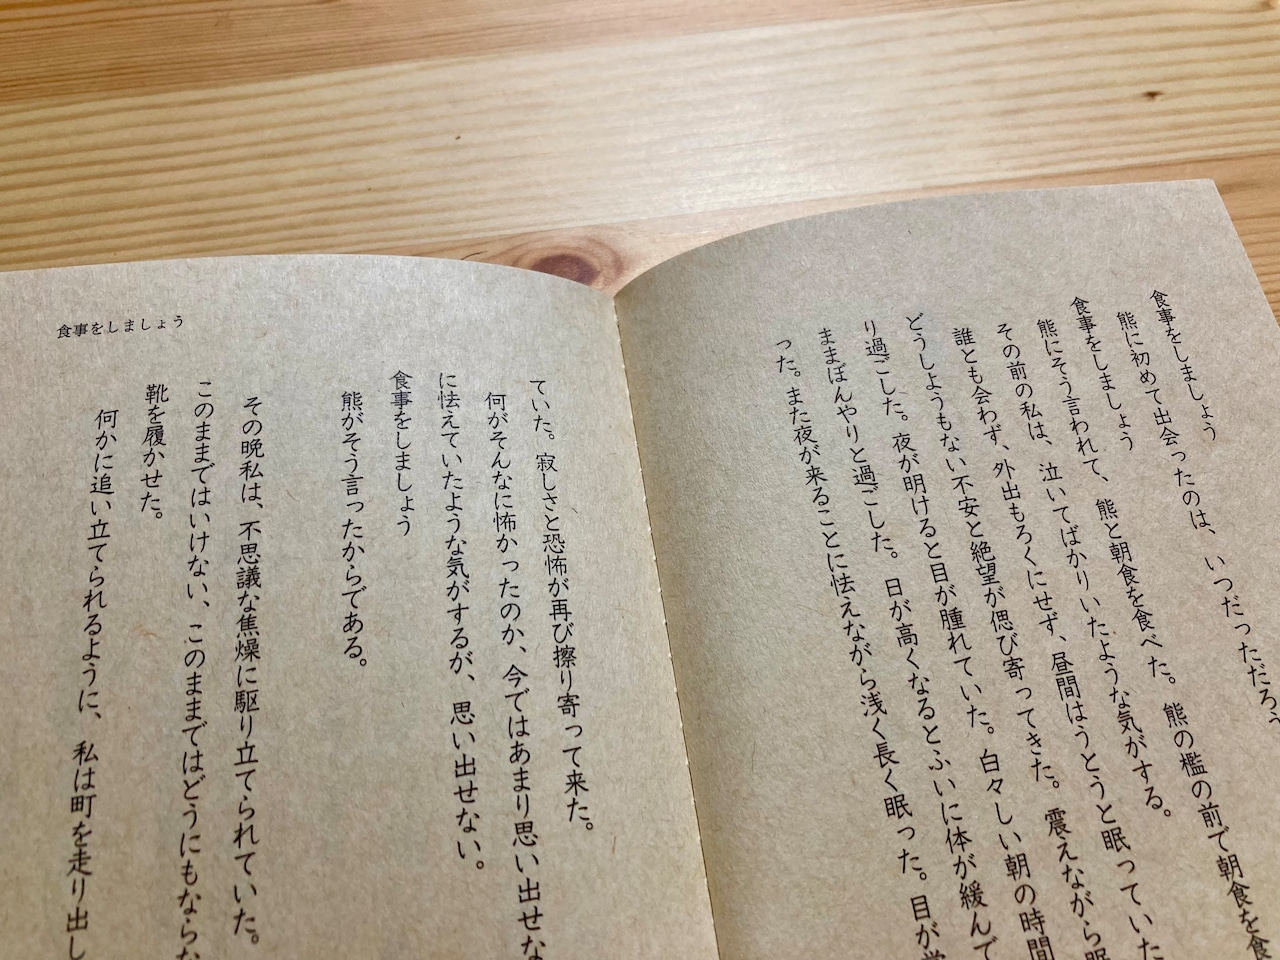 食事をしましょう
熊に初めて出会ったのは、いつだっただろう
食事をしましょう
熊にそう言われて、熊と朝食を食べた。熊の檻の前で朝食を食
その前の私は、泣いてばかりいたような気がする。
誰とも会わず、外出もろくにせず、昼間はうとうと眠っていた
どうしようもない不安と絶望が偲び寄ってきた。震えながら眠
り過ごした。夜が明けると目が腫れていた。白々しい朝の時間
ままぼんやりと過ごした。日が高くなるとふいに体が緩んで
った。また夜が来ることに怯えながら浅く長く眠った。目が覚
ていた。寂しさと恐怖が再び擦り寄って来た。
何がそんなに怖かったのか、今ではあまり思い出せな
に怯えていたような気がするが、思い出せない。
食事をしましょう
熊がそう言ったからである。
その晩私は、不思議な焦燥に駆り立てられていた。
このままではいけない、このままではどうにもならな
靴を履かせた。
何かに追い立てられるように、私は町を走り出し
食事をしましょう